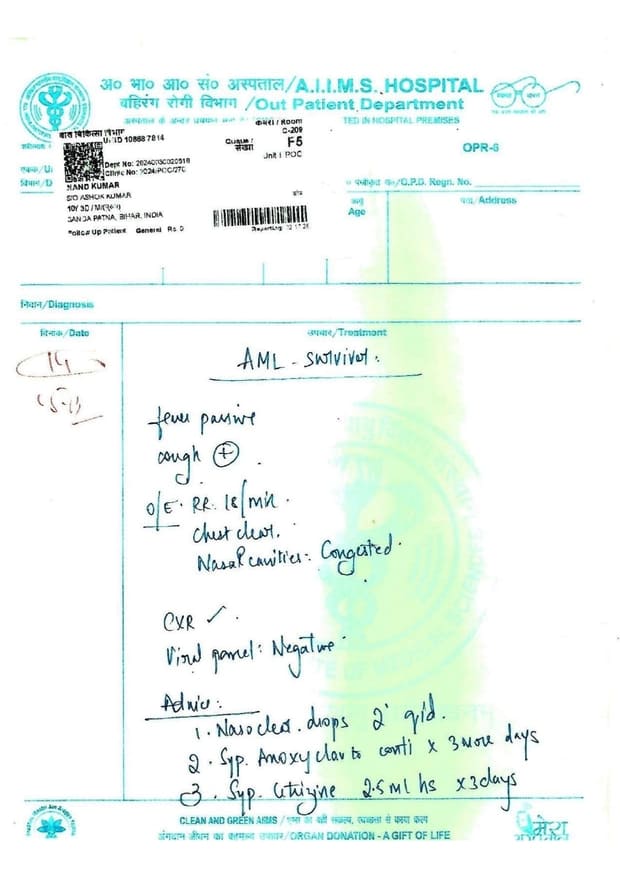 अ० भा० आ० सं० अस्पताल/A.I.I.M.S. HOSPITAL
बहिरंग रोगी विभाग /Out Patient Department
TED IN HOSPITAL PREMISES
कमरा / Room
C-209
Queue /
संख्या
F5
Unit : POC
OPR-6
Dept No:
Clinic No:
NAND KUMAR
S/O ASHOK KUMAR
PATNA, BIHAR, INDIA
Follow Up Patient General Rs. 0
Reporting:
/O.P.D. Regn. No.
आयु
Age
पता/Address
निदान/Diagnosis
दिनांक/Date
उपचार/Treatment
14
AML - survivor.
fever passive
cough +
O/E. RR. 18/min.
Chest clear.
Nasal cavities: Congested.
CXR ✓
Viral panel: Negative
Advice:
1. Nasoclear drops 2' qid.
2. Syp. Amoxyclav to conti x 3 more days
3. Syp. Citrizine 2.5ml hs x3days
CLEAN AND GREEN AIIMS / एम्स का यही संकल्प, स्वच्छता से काया कल्प
अंगदान जीवन का बहुमूल्य उपहार/ORGAN DONATION - A GIFT OF LIFE